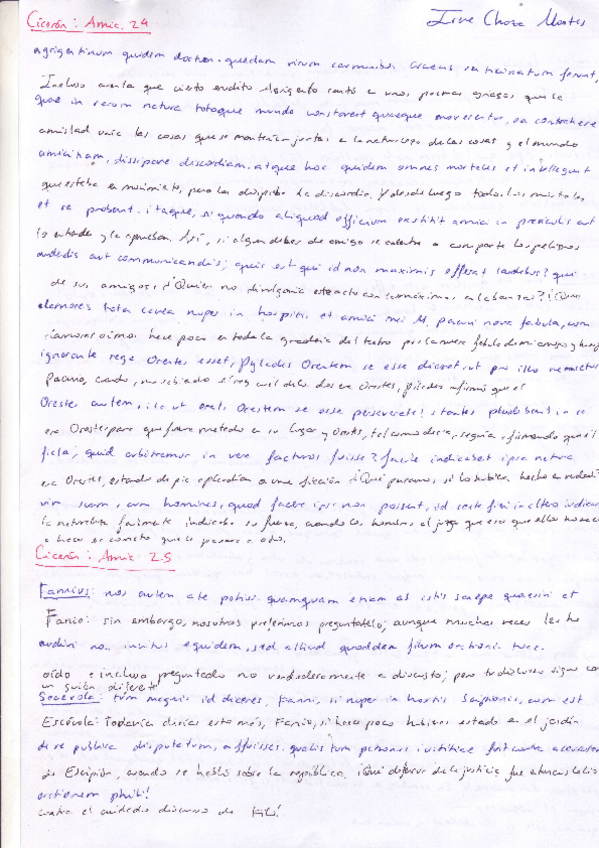 Cicerón: Amic. 24
Irene Choza Montes
agrigentinum quidem doctum quendam virum carminibus Graecis vaticinatum ferunt,
Incluso cuenta que cierto erudito Agrigento cantó a unos poemas griegos que la
quae in rerum natura totoque mundo constarent quaeque moverentur, ea contrahere
amistad unía las cosas que se mantenían juntas a la naturaleza de las cosas y el mundo
amicitiam, dissipare discordiam. atque hoc quidem omnes mortales et intellegunt
que estaba en movimiento, pero las la discordia. Y desde luego todos los mortales
et re probant. itaque, si quando aliquod officium exstitit amici in periculis aut
lo entiende y lo aprueban. Así, si algún deber de amigo se a compartir los peligros
aut communicandis; quis est qui id non maximis efferat laudibus? qui
de sus amigos, ¿Quién no divulgaría esto con las máximas alabanzas? ¡Qué
clamores tota cavea nuper in hospitis et amici mei M. Pacuvi nova fabula, cum
clamores oímos hace poco en toda la gradería del teatro por la nueva fábula de mi amigo y
ignorante rege Orestes esset, Pylades Orestem se esse diceret, ut pro illo necaretur
Pacuvio, cuando, no sabiendo el rey cuál de los dos era Orestes, Pílades afirmó que él
Orestes autem, ita ut erat, Orestem se esse perseveret! stantes plaudebant in re
era Orestes para que fuera matado en su lugar y Orestes, tal como decía, seguía afirmando que él
ficta; quid arbitramur in vera facturos fuisse? facile indicabat ipsa natura
era Orestes, estando de pie aplaudían a una ficción ¿Qué pensamos, si lo hubieran hecho en realidad?
vim suam, cum homines, quod facere ipsi non possent, id recte fieri in altero iudicarent
la naturaleza fácilmente indicaba su fuerza, cuando los hombres al juzgar que eso que ellos no
a hacer es correcto que lo a otro.
Cicerón: Amic. 25
Fannius: nos autem a te potius. quamquam etiam ab istis saepe quaesivi et
Fanio: sin embargo, nosotros preferimos preguntártelo; aunque muchas veces les he
audivi non invitus equidem, sed aliud quoddam filum orationis tuae.
oído e incluso preguntado no verdaderamente a disgusto; pero tu discurso sigue con
un guión diferente
Scaevola: tum magis id diceres, Fanni, si nuper in hortis Scipionis, cum est
Escévola: Todavía dirías esto más, Fanio, si hace poco hubieras estado en el jardín
de re publica disputatum, affuisses. qualis tum patronus iustitiae fuit contra accuratam
de Escipión, cuando se habló sobre la república. ¡Qué defensor de la justicia fue entonces Lelio
orationem phili!
contra el cuidado discurso de Filo!